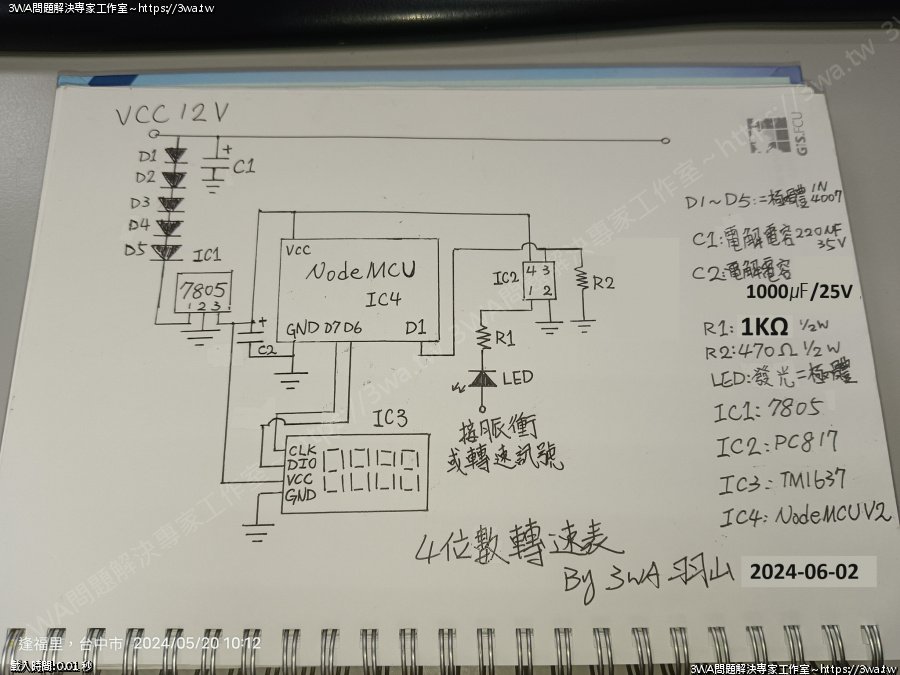 3WA問題解決專家工作室~https://3wa.tw
VCC 12V
GIS.FCU
D1
D2
D3
D4
D5
+
C1
IC1
7805
1 2 3
+
C2
VCC
NodeMCU
IC4
GND D7 D6 D1
IC2
4 3
1 2
R2
R1
LED
接脈衝
或轉速訊號
IC3
CLK
DIO
VCC
GND
D1~D5:二極體 1N4007
C1:電解電容 220μF 35V
C2:電解電容
1000μF/25V
R1: 1KΩ ½W
R2:470Ω ½W
LED:發光二極體
IC1: 7805
IC2: PC817
IC3: TM1637
IC4: NodeMCU V2
4位數轉速表
By 3WA 羽山 2024-06-02
逢福里,台中市 2024/05/20 10:12
載入時間:0.01 秒
3WA問題解決專家工作室~https://3wa.tw